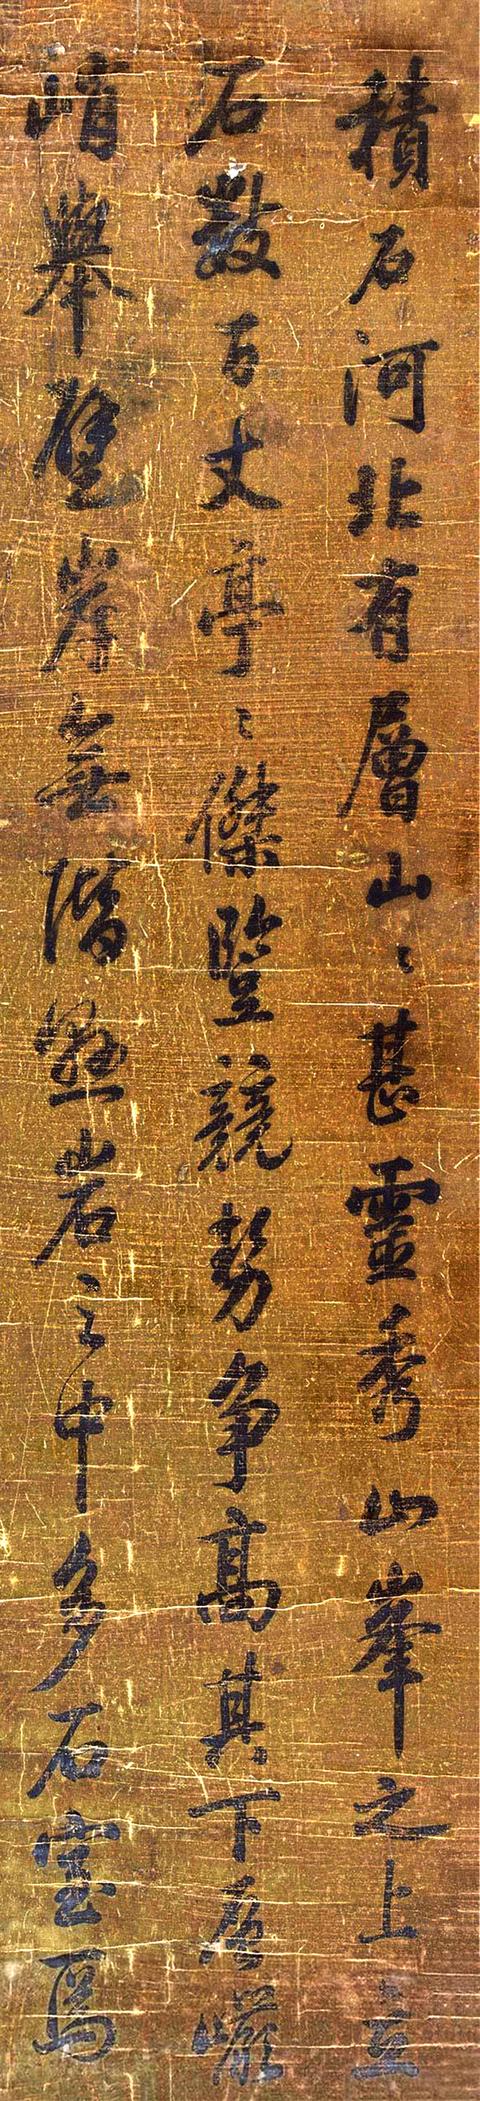 積石河北有層山〻甚靈秀山峯之上立
石數百丈亭〻傑豎競勢争高其下層巖
峭舉壁岸無階懸岩之中多石室焉